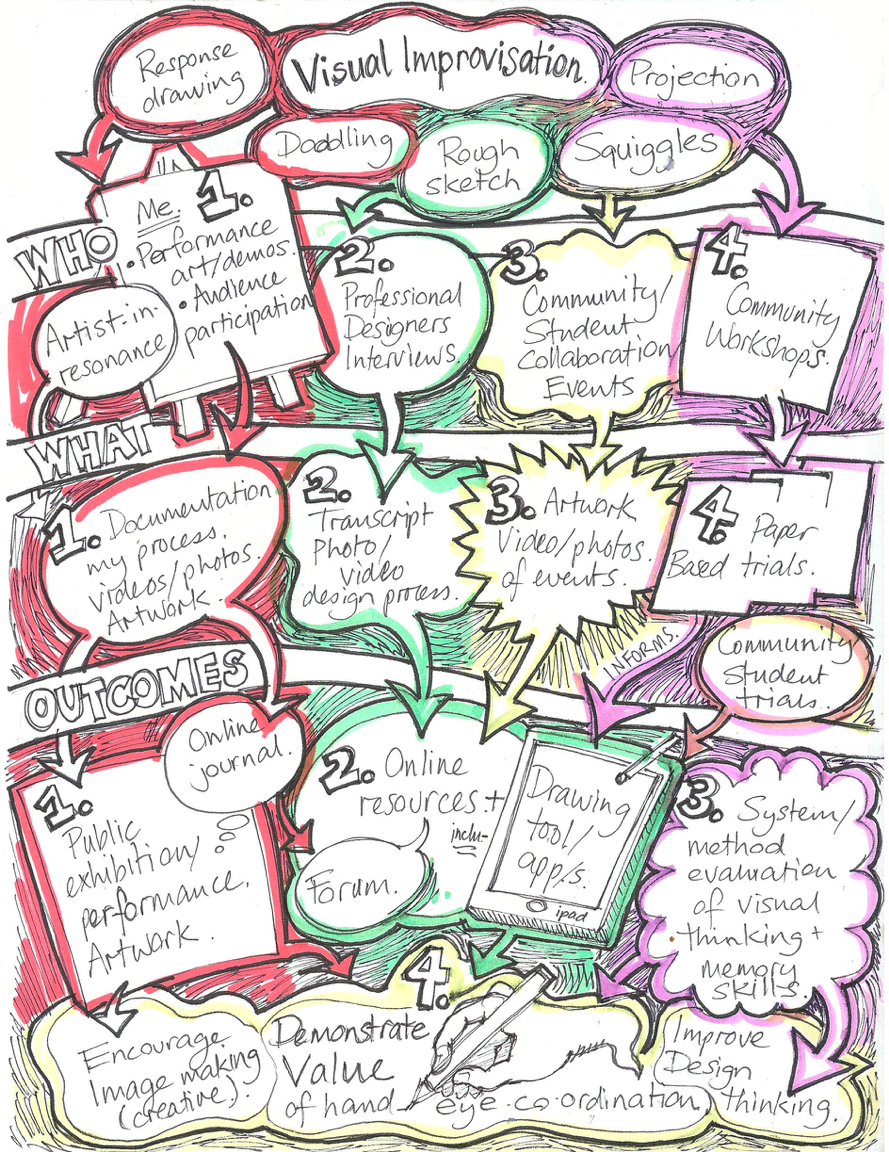 Response
drawing
Visual Improvisation.
Projection
Doodling
Rough
sketch
Squiggles
WHO
1.
Me
• Performance
art/demos.
• Audience
participation
Artist-in-
resonance
2.
Professional
Designers
Interviews.
3.
Community/
Student
Collaboration
Events
4.
Community
Workshops.
WHAT
1. Documentation
my process.
videos/photos.
Artwork.
2.
Transcript
Photo/
video
design process.
3. Artwork
Video/photos.
of events.
4. Paper
Based trials.
INFORMS.
Community
Student
trials.
OUTCOMES
Online
journal.
1.
Public
exhibition/
performance.
Artwork.
2. Online
resources +
inclu-
Forum.
Drawing
tool/
app/s.
ipad
3. System/
method
evaluation
of visual
thinking +
memory
skills.
4.
Encourage
Image making
(creative).
Demonstrate
Value
of hand
eye-co-ordination
Improve
Design
thinking.